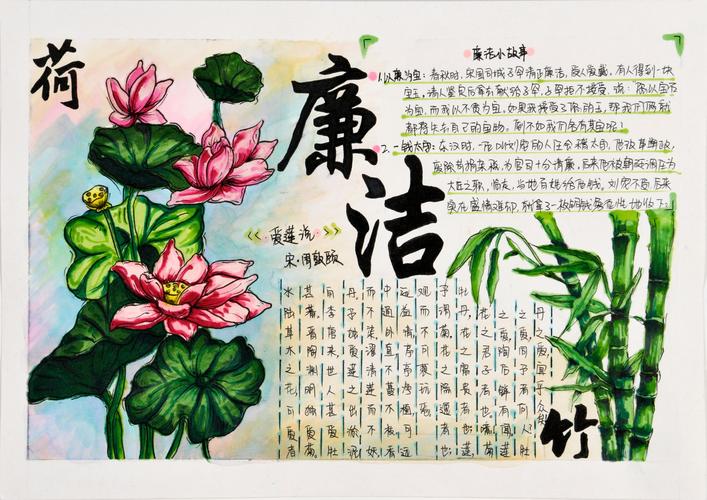 荷
廉洁
廉洁小故事
1.以廉为宝：春秋时，宋国司城子罕清正廉洁，受人爱戴。有人得到一块
宝玉，请人鉴定后拿去献给子罕，子罕拒不接受，说：你以宝石
为宝，而我以不贪为宝。如果我接受了你的玉，那我们俩就
都失去了自己的宝物。倒不如我们各有其宝呢！
2.一钱太守：东汉时，一位叫刘宠的人任会稽太守，他改革弊政，
废除苛捐杂税，为官十分清廉。后来他被朝廷调任为
大匠之职，临走，当地百姓给他钱，刘宠不受 后来
实在盛情难却，就拿了一枚铜钱象征性地收下。
爱莲说
宋·周敦颐
水陆草木之花可爱者
甚蕃晋陶渊明独爱菊
自李唐来世人甚爱牡
丹予独爱莲之出淤泥
而不染濯清涟而不妖
中通外直不蔓不枝香
远益清亭亭净植可远
观而不可亵玩焉
予谓菊花之隐逸者也
牡丹花之富贵者也莲
花之君子者也噫菊
之爱陶后鲜有闻莲
之爱同予者何人牡
丹之爱宜乎众矣
竹